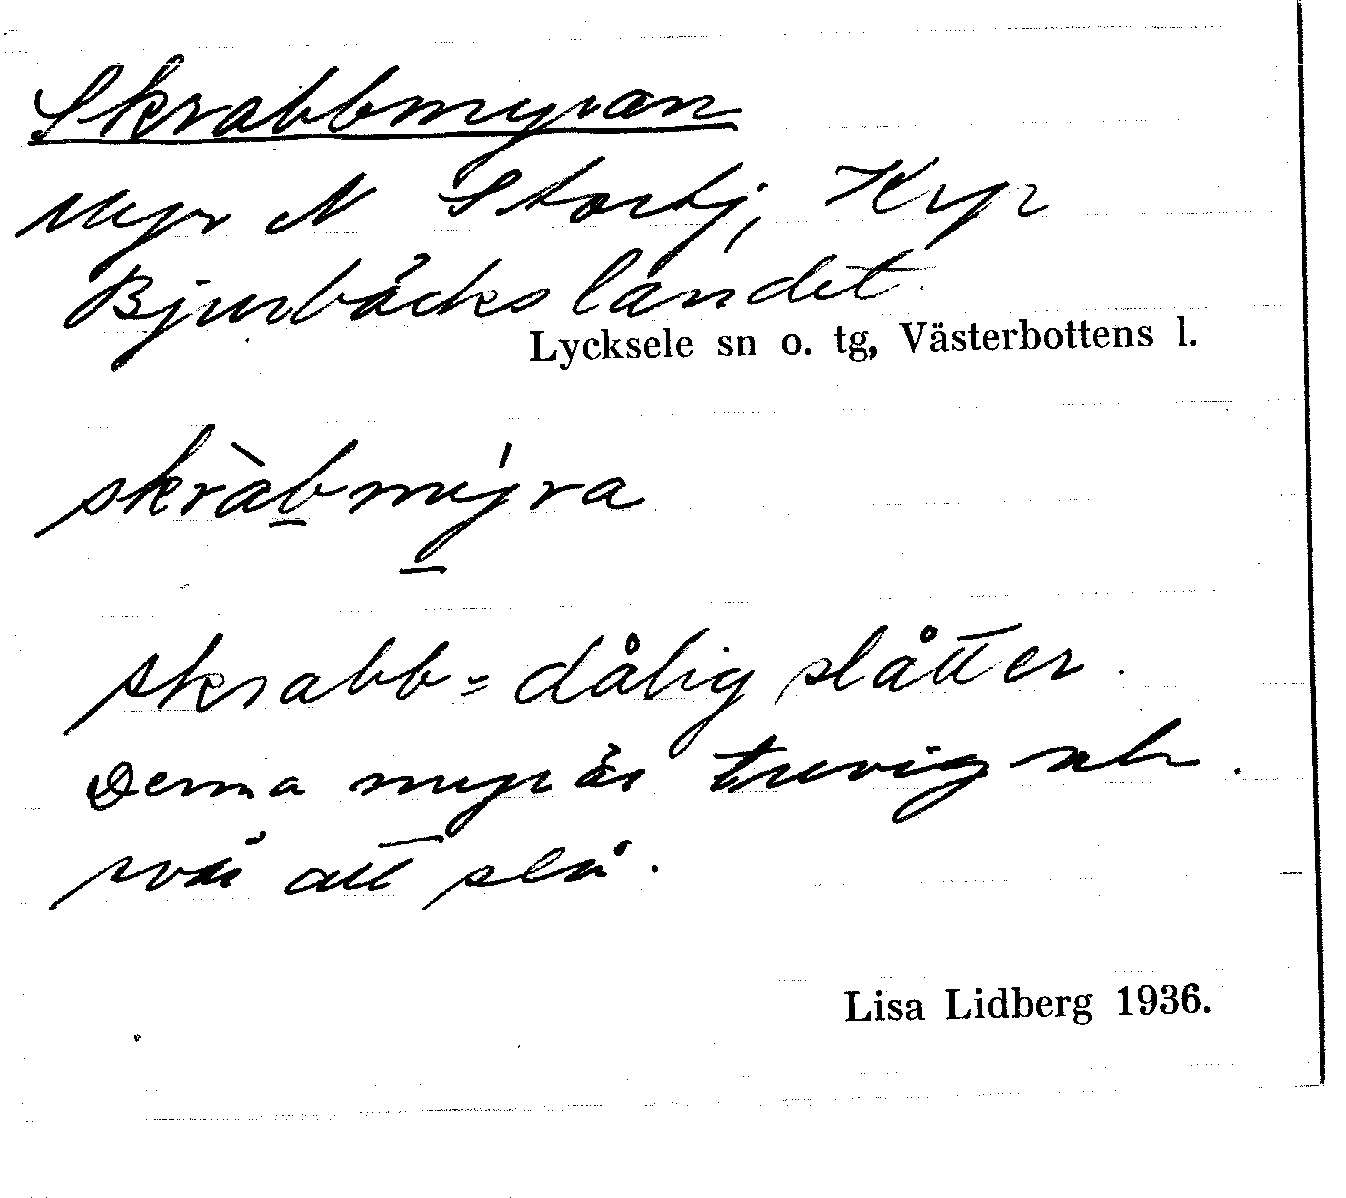 Skrabbmyran
Myr N Stortj, Kryp
Bjurbäckslandet
Lycksele sn o. tg, Västerbottens l.
skràbmýra
skrabb = dålig slåtter.
Denna myr är tuvig och.
svår att slå.
Lisa Lidberg 1936.